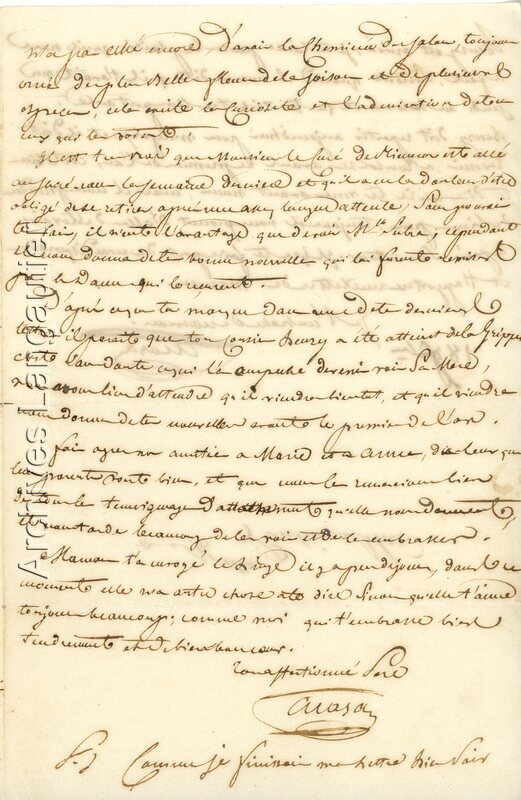 encore d'avoir la Cheminée du Salon, toujours
ornée des plus Belle fleurs de la saison et de plusieurs
espèces, cela excite la Curiosité et l'admiration de tous
ceux qui le voient.
Il est vrai que Monsieur le Curé de est allé
au sacré-cœur la semaine dernière et qu'il a eu la douleur d'être
obligé de se retirer après une assez longue attente, Sans pouvoir
te voir, il l'avantage que de voir ; cependant
il nous donna de tes bonne nouvelle qui lui furent remises
par la Dame qui le reçurent.
D'après ce que tu marque dans une de tes dernieres
lettre il paraite que ton Cousin henry a été atteint de la Grippe,
c'est sans doute ce qui l'a empeché de venir voir Sa Mere,
nous avons lieu d'attendre qu'il viendra bientot, et qu'il viendra
nous donner de tes nouvelles avant le premier de l'an.
fais agréer nos amitiés a Marie et a anne, dis leur que
leur parents vont bien, et que nous les remercions bien
de tous le temoignage d'attachement qu'elle nous donnent,
il nous tarde beaucoup de les voir et de les embrasser.
Maman t'a envoyé le linge il y a peu de jours, dans ce
moment elle n'a autre chose a te dire Sinon qu'elle t'aime
toujours beaucoup, comme moi qui t'embrasse bien
tendrement et de bien bon cœur.
ton affectionné Pere
P.S Comme je finissais ma lettre Bien
Archives-Largaullier